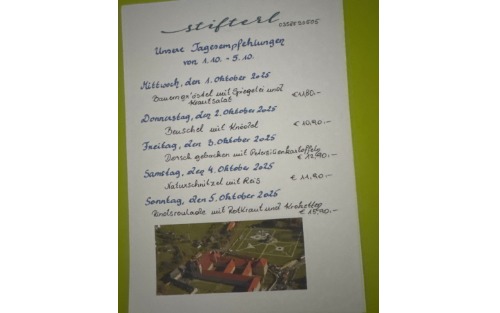 stifterl
Unsere Tagesempfehlungen
von 1.10. - 5.10.
Mittwoch, den 1. Oktober 2025
Bauerngröstel mit Spiegelei und
Krautsalat € 11,80.-
Donnerstag, den 2. Oktober 2025
Beuschel mit Knödel € 10,90.-
Freitag, den 3. Oktober 2025
Dorsch gebacken mit Petersilienkartoffeln € 12,90.-
Samstag, den 4. Oktober 2025
Naturschnitzel mit Reis € 11,90.-
Sonntag, den 5. Oktober 2025
Rindsroulade mit Rotkraut und € 15,90.-